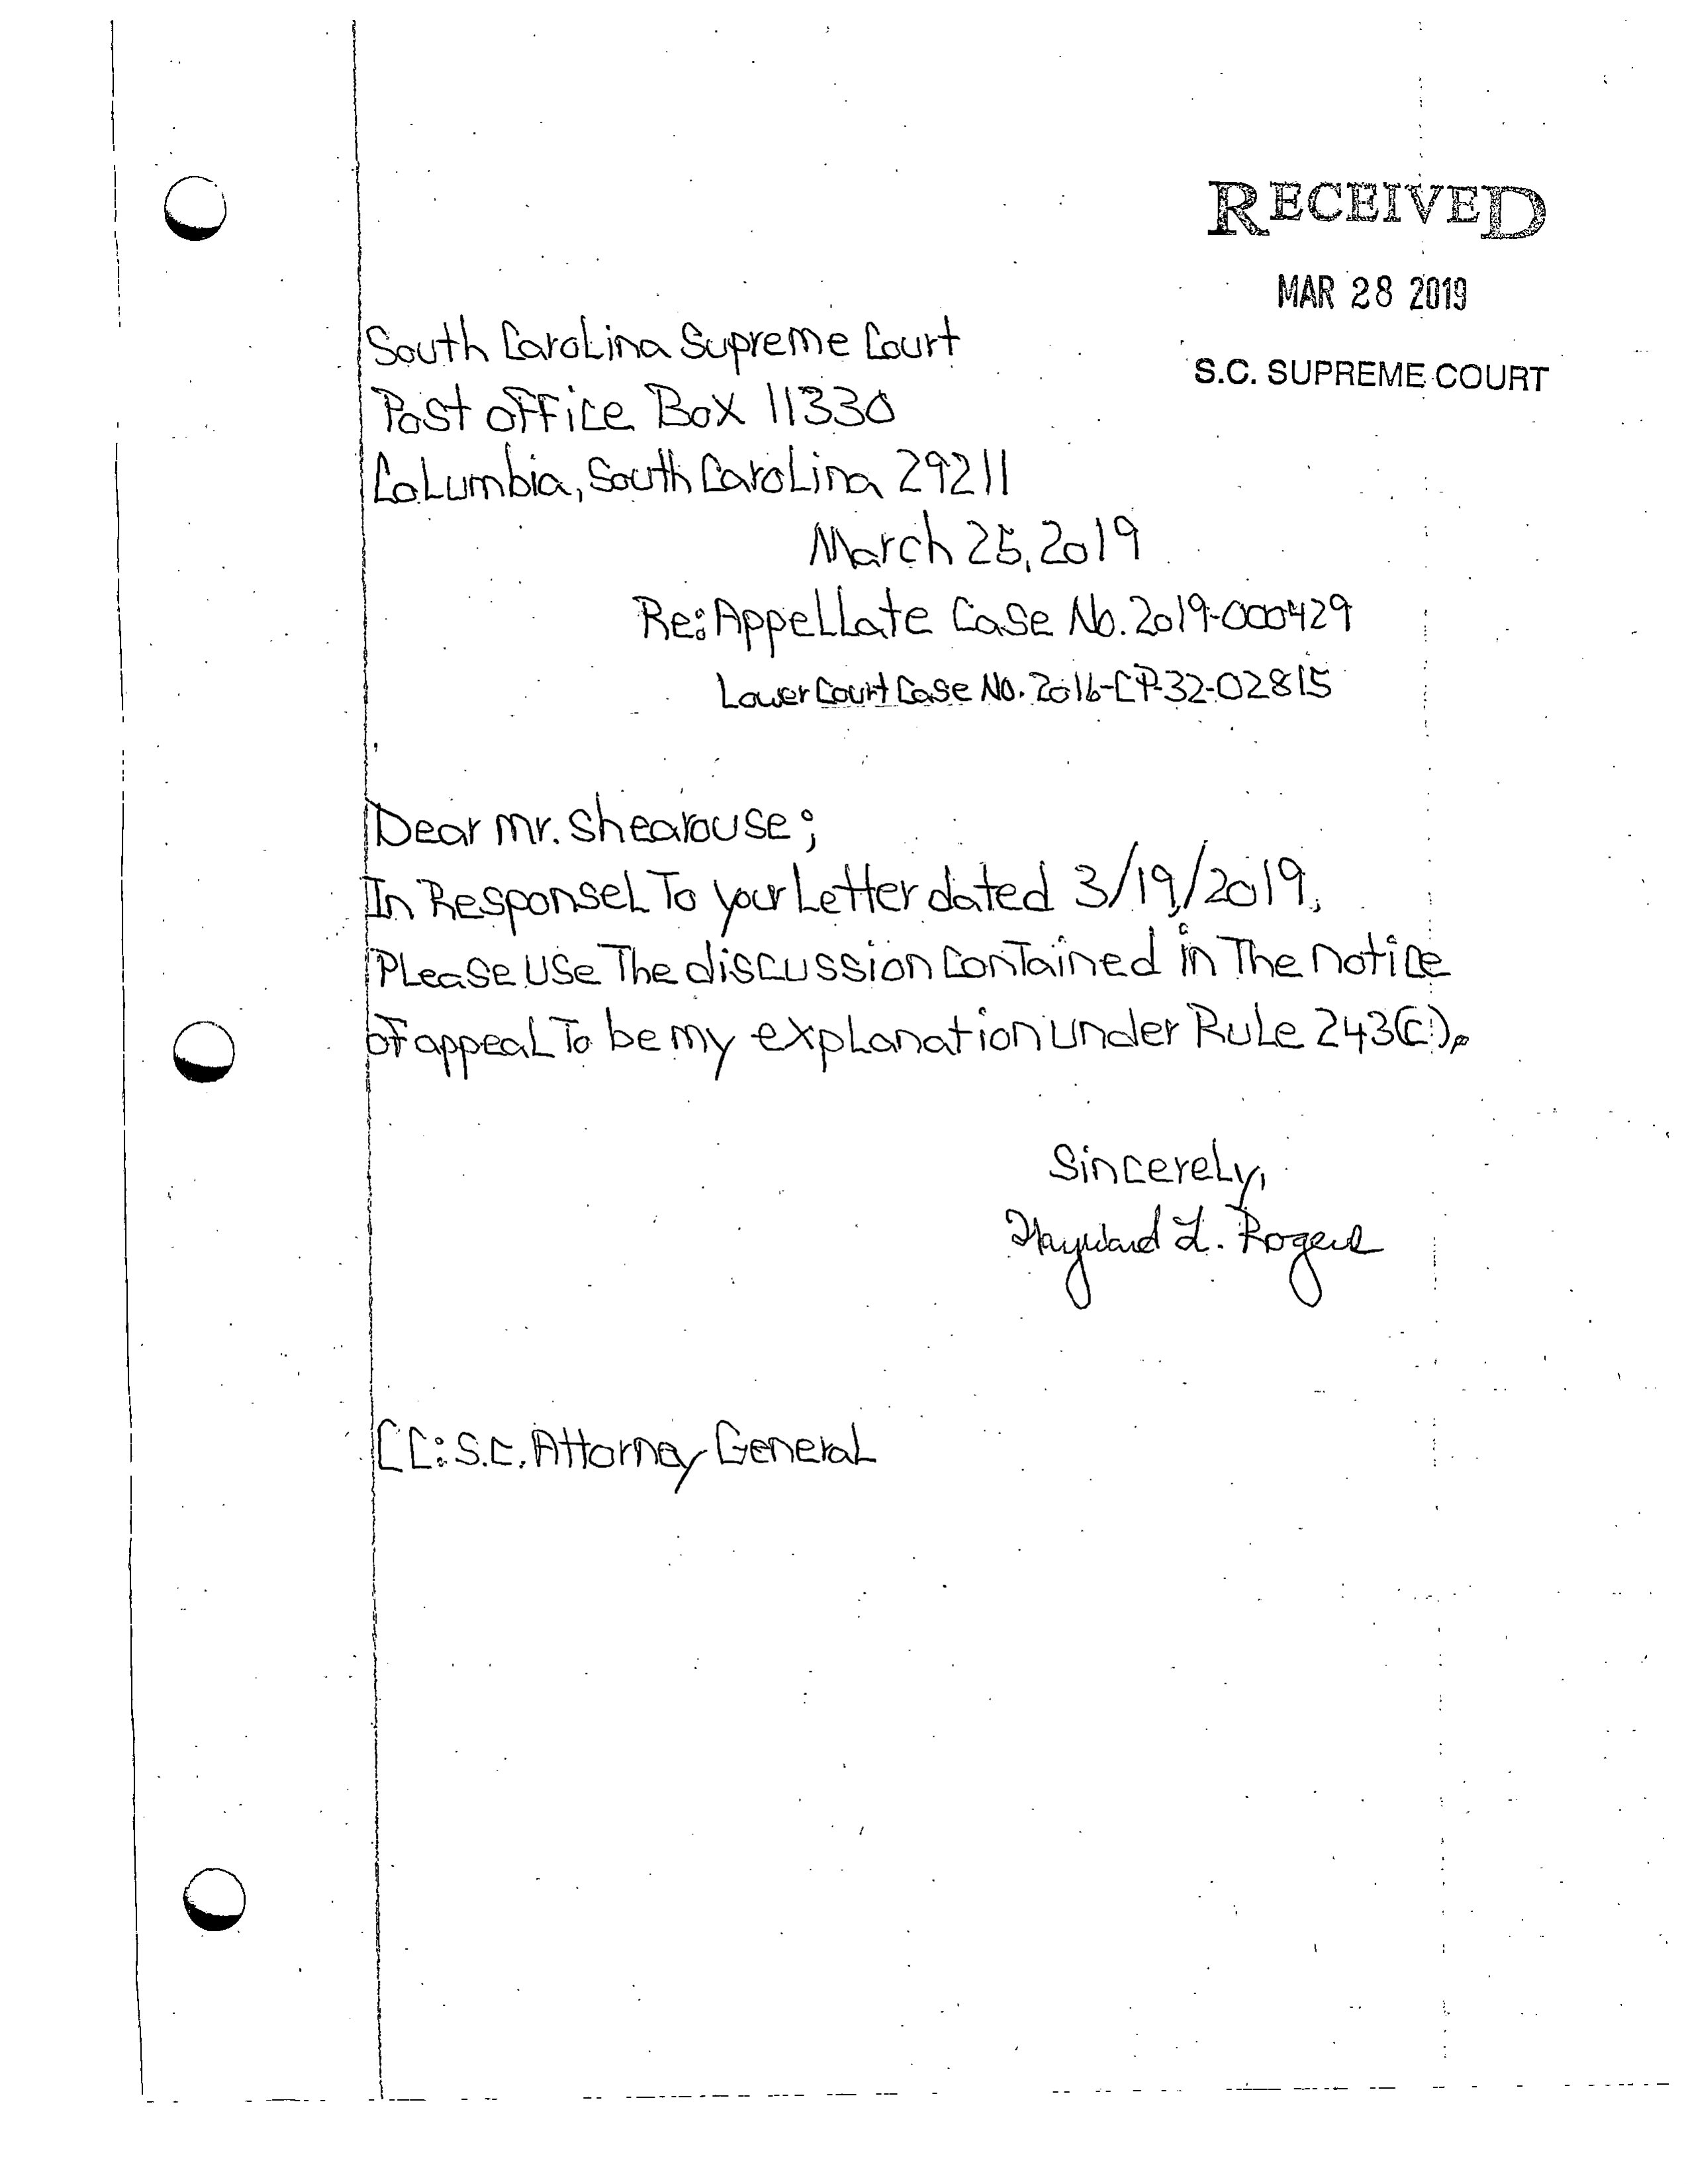 RECEIVED
MAR 28 2019
S.C. SUPREME COURT
South Carolina Supreme Court
Post office Box 11330
Columbia, South Carolina 29211
March 25, 2019
Re: Appellate Case No. 2019-000429
Lower Court Case No. 2016-CP-32-02815
Dear Mr. Shearouse;
In Responsel To your Letter dated 3/19/2019,
Please Use The discussion contained in The notice
of appeal To be my explanation under Rule 243(c).
Sincerely,
Hayward L. Rogers
CC: S.C. Attorney General